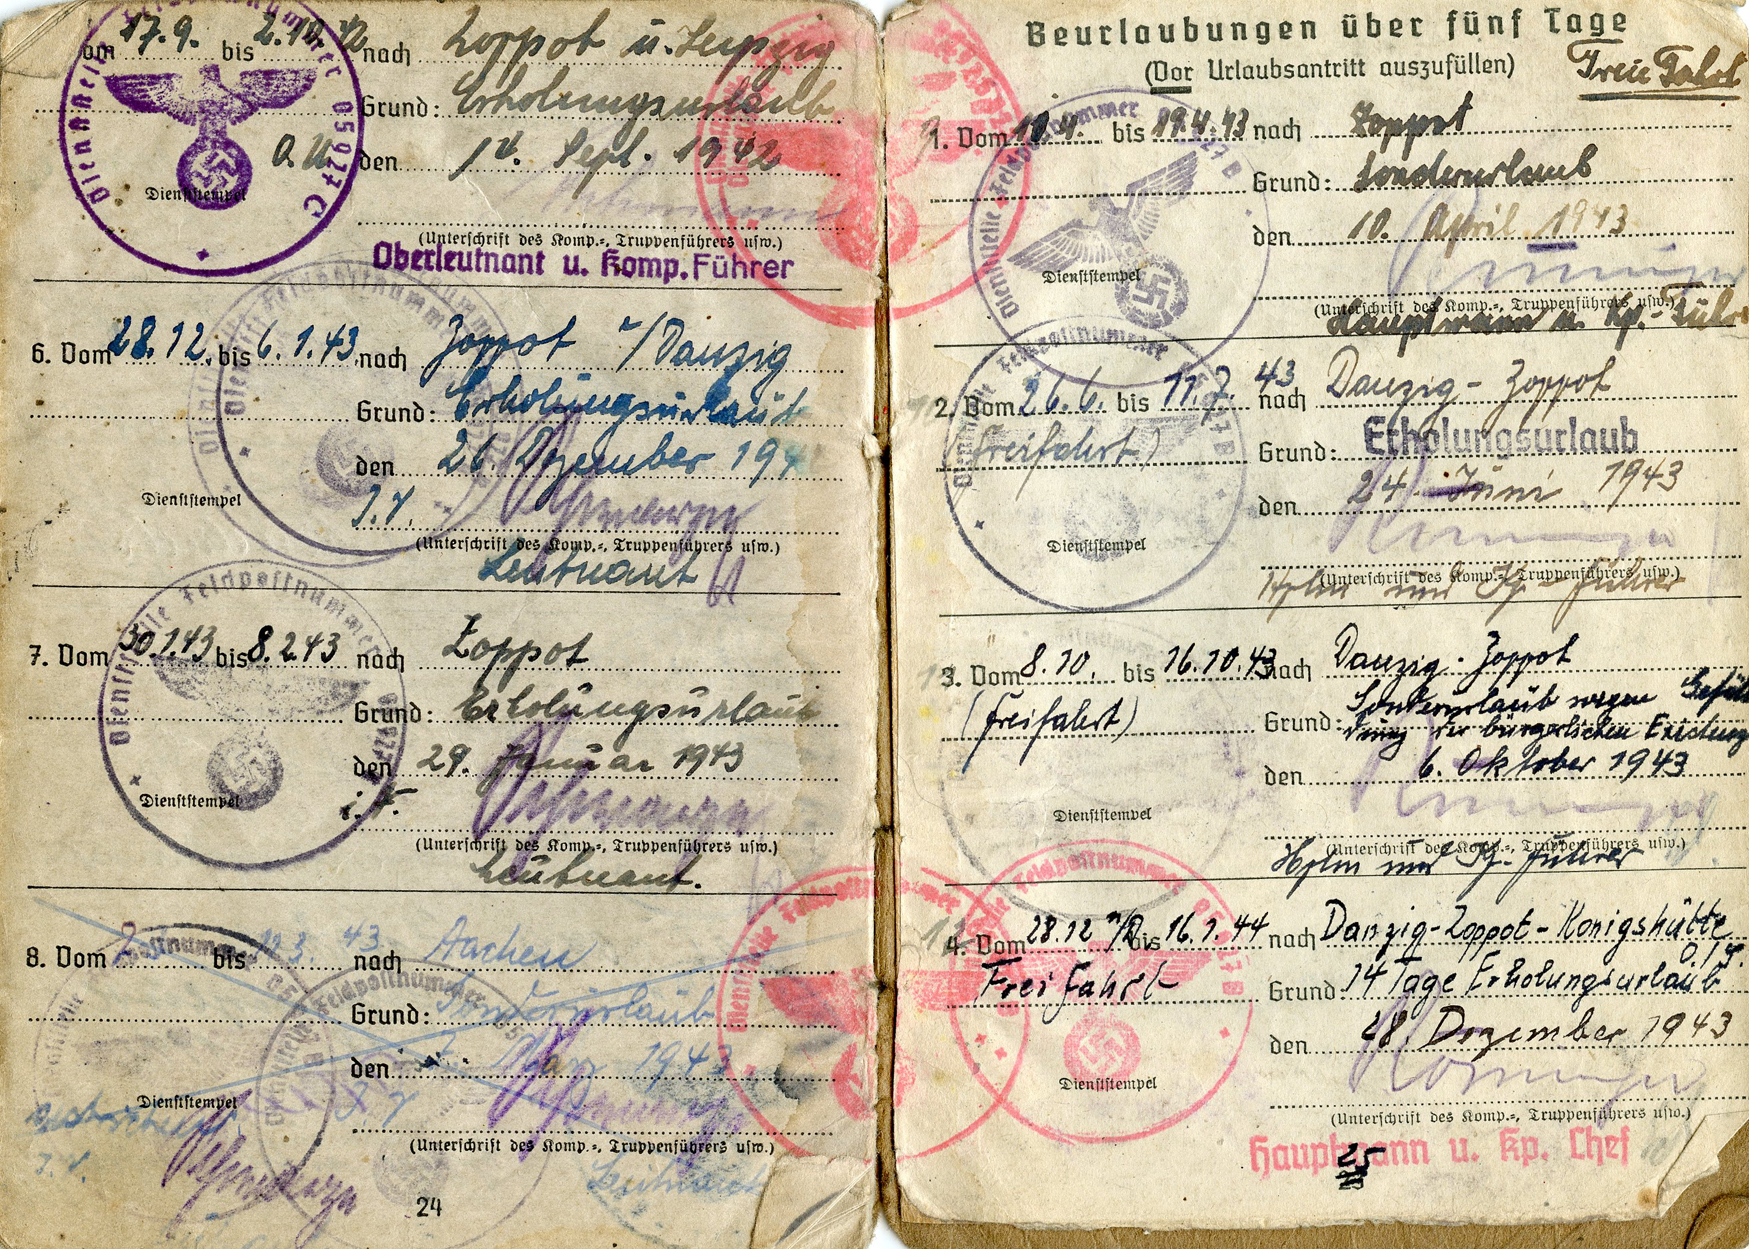 vom 17.9. bis 2.10.42 nach Zoppot u. Leipzig
Grund: Erholungsurlaub
O.U. den 14. Sept. 1942
Dienststempel
(Unterschrift des Komp.-, Truppenführers usw.)
Oberleutnant u. Komp. Führer
Dienststelle Feldpostnummer 05927 C
6. Vom 28.12. bis 6.1.43 nach Zoppot /Danzig
Grund: Erholungsurlaub
den 26. Dezember 194
Dienststempel
J.V.
(Unterschrift des Komp.-, Truppenführers usw.)
Leutnant
Dienststelle Feldpostnummer
7. Vom 30.1.43 bis 8.2.43 nach Zoppot
Grund: Erholungsurlaub
den 29. Januar 1943
Dienststempel
i.V.
(Unterschrift des Komp.-, Truppenführers usw.)
Leutnant.
Dienststelle Feldpostnummer
8. Vom 2 bis 3. 43 nach Aachen
Grund: Sonderurlaub
den März 1943
Dienststempel
(Unterschrift des Komp.-, Truppenführers usw.)
J.V.
Leutnant
24
Beurlaubungen über fünf Tage
(Vor Urlaubsantritt auszufüllen)
Freie Fahrt
1. Vom 10.4. bis 19.4.43 nach Zoppot
Grund: Sonderurlaub
den 10. April 1943
Dienststempel
(Unterschrift des Komp.-, Truppenführers usw.)
Hauptmann u. Kp.-Führer
Dienststelle Feldpostnummer
2. Vom 26.6. bis 11.7. 43 nach Danzig - Zoppot
(Freifahrt)
Grund: Erholungsurlaub
den 24. Juni 1943
Dienststempel
(Unterschrift des Komp.-, Truppenführers usw.)
Hptm und Kp.-Führer
3. Vom 8.10. bis 16.10.43 nach Danzig - Zoppot
(Freifahrt)
Grund: Sonderurlaub wegen
der bürgerlichen Existenz
den 6. Oktober 1943
Dienststempel
(Unterschrift des Komp.-, Truppenführers usw.)
Hptm und Kp.-Führer
4. Vom 28.12 bis 16.1.44 nach Danzig-Zoppot-Königshütte
O.S.
Frei Fahrt
Grund: 14 Tage Erholungsurlaub
den 28. Dezember 1943
Dienststempel
(Unterschrift des Komp.-, Truppenführers usw.)
Hauptmann u. Kp. Chef
25